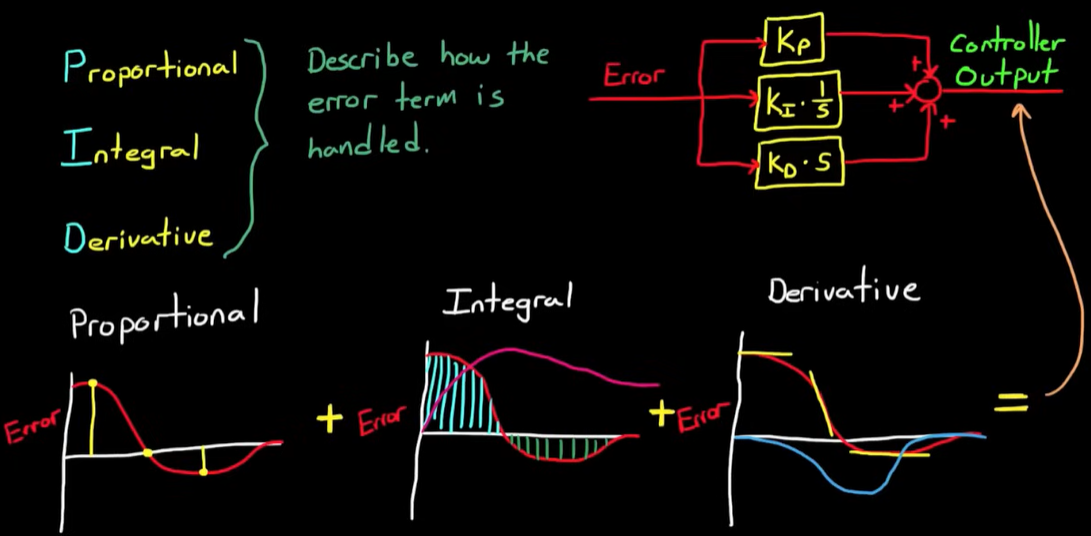 Proportional
Integral
Derivative
Describe how the
error term is
handled.
Error
Kp
KI · 1/s
KD · s
+
+
+
Controller
Output
Proportional
Integral
Derivative
Error
+
Error
+
Error
=